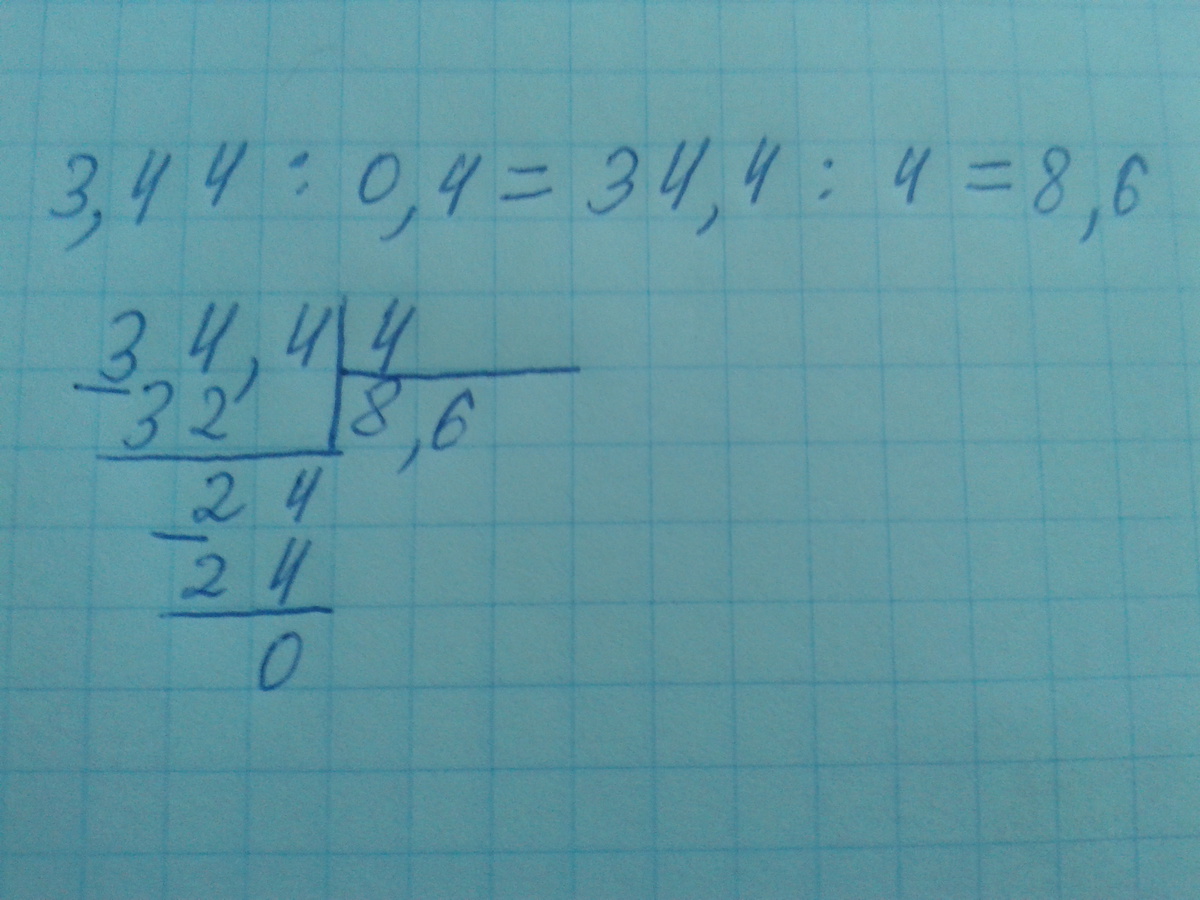 3,44 : 0,4 = 34,4 : 4 = 8,6
34,4 | 4
- 32 | 8,6
24
- 24
0